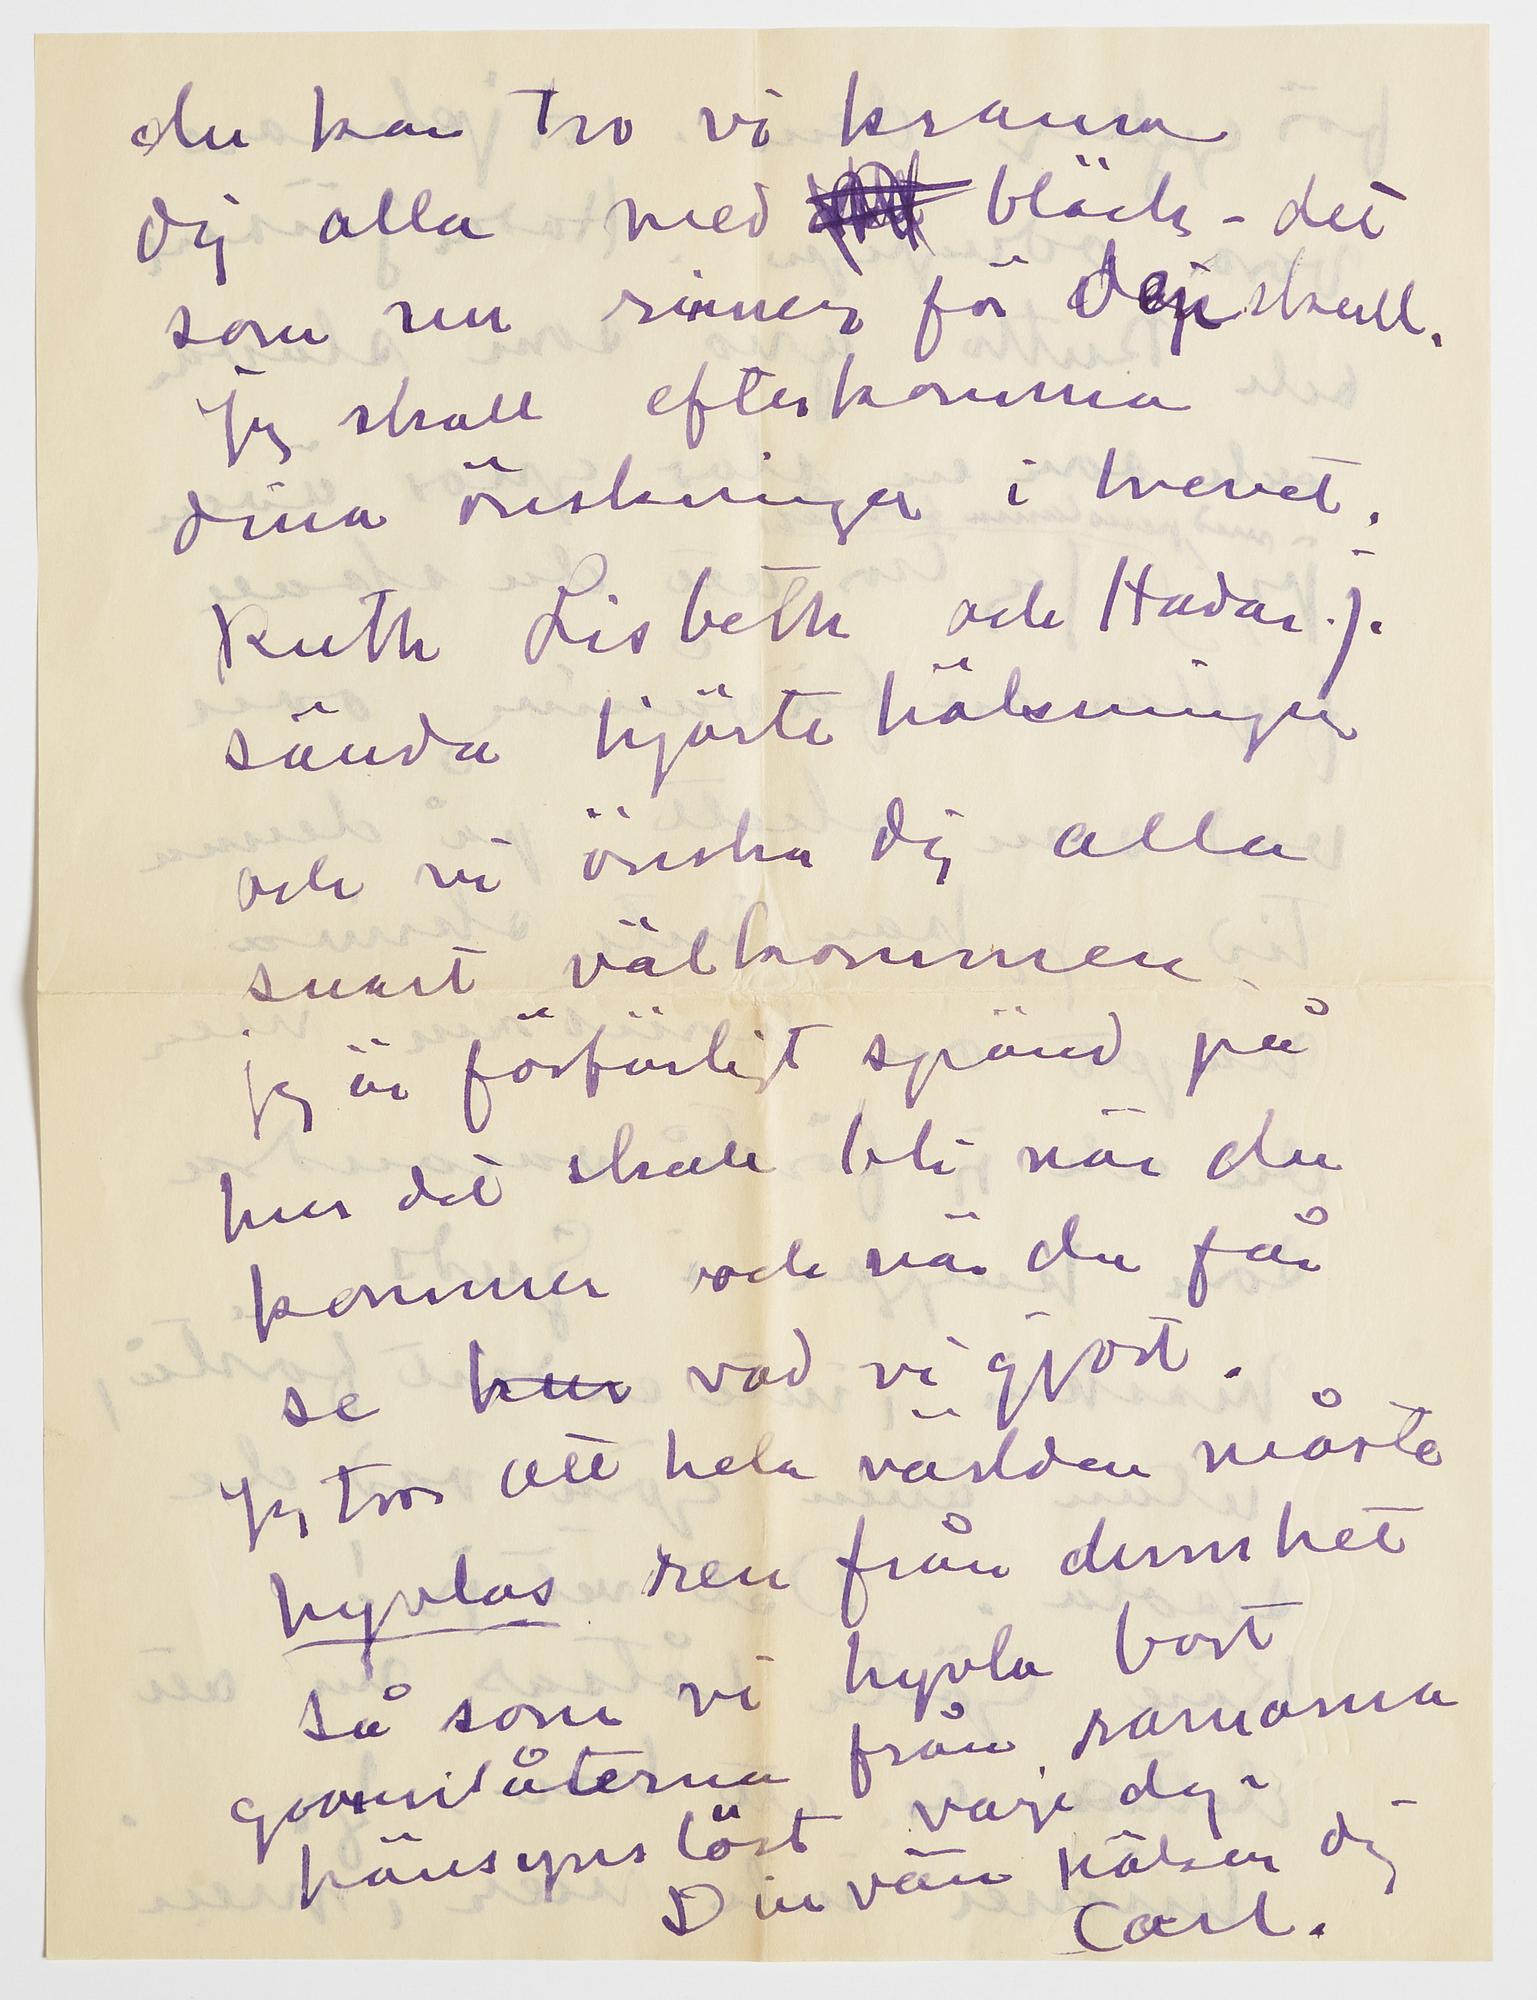 du kan tro vi krama
dig alla med bläck - det
som nu rinner för dej skull.
Jag skall efterkomma
dina önskningar i brevet.
Ruth Lisbeth och Hadar J.
sända hjärte hälsningar
och vi önska dig alla
snart välkommen
jag är förfärligt spänd på
hur det skall bli när du
kommer och när du får
se hur vad vi gjort.
Jag tror att hela världen måste
hyvlas ren från dumhet
så som vi hyvla bort
från ramarna
hänsynslöst varje dag -
Din vän hälsar dig
Carl.